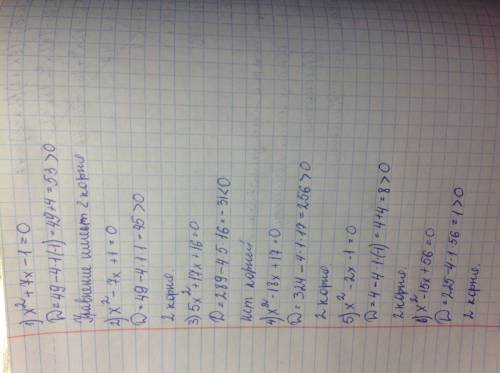 1) x² + 7x - 1 = 0
D = 49 - 4·1·(-1) = 49 + 4 = 53 > 0
Уравнение имеет 2 корня
2) x² - 7x + 1 = 0
D = 49 - 4·1·1 = 45 > 0
2 корня
3) 5x² + 17x + 16 = 0
D = 289 - 4·5·16 = -31 < 0
Нет корней
4) x² - 18x + 17 = 0
D = 324 - 4·1·17 = 256 > 0
2 корня
5) x² - 2x - 1 = 0
D = 4 - 4·1·(-1) = 4 + 4 = 8 > 0
2 корня
6) x² - 15x + 56 = 0
D = 225 - 4·1·56 = 1 > 0
2 корня.